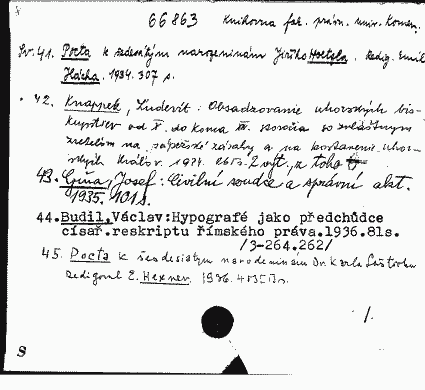 66863 Knihovna fak. práv. univ. Komen.
Sv. 41. Pocta k šedesátým narozeninám Jiřího Hoetzla. Redig. Emil
Hácha. 1934. 307 s.
42. Knappek, Ľudevít: Obsadzovanie uhorských bis-
kupstiev od X. do konca storočia so zvláštnym
zreteľom na pápežské zásahy a na postavenie uhor-
ských kráľov. 1934. 2 výt., z toho
43. Josef: Civilní soudce a správní akt.
1935. 101 s.
44. Budil, Václav: Hypografé jako předchůdce
císař. reskriptu římského práva. 1936. 81s.
/3-264.262/
45. Pocta k šesdesiatym narodeninám Dr. Karla Laštovku
Redigoval E. 1936.
1.
8